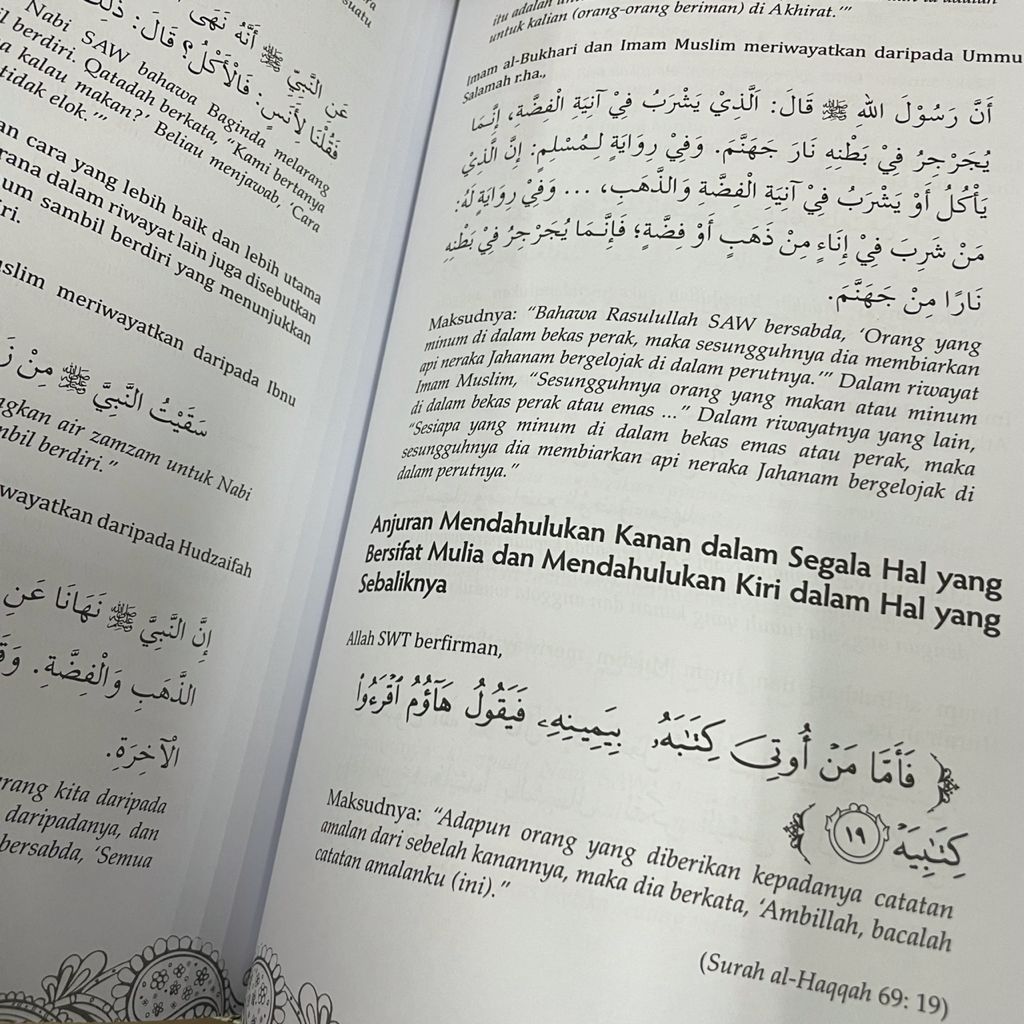 عَنِ النَّبِيِّ ﷺ أَنَّهُ نَهَى
فَقُلْنَا لِأَنَسٍ: فَالْأَكْلُ؟ قَالَ: ذَلِكَ
Nabi SAW bahawa Baginda melarang
berdiri. Qatadah berkata, "Kami bertanya
kalau makan?' Beliau menjawab, 'Cara
tidak elok.'"
cara yang lebih baik dan lebih utama
dalam riwayat lain juga disebutkan
sambil berdiri yang menunjukkan
meriwayatkan daripada Ibnu
سَقَيْتُ النَّبِيَّ ﷺ مِنْ
air zamzam untuk Nabi
berdiri."
daripada Hudzaifah
إِنَّ النَّبِيَّ ﷺ نَهَانَا عَنِ
الذَّهَبِ وَالْفِضَّةِ.
الْآخِرَةِ.
kita daripada
daripadanya, dan
bersabda, 'Semua
untuk kalian (orang-orang beriman) di Akhirat.'"
Imam al-Bukhari dan Imam Muslim meriwayatkan daripada Ummu
Salamah r.ha.,
أَنَّ رَسُوْلَ اللهِ ﷺ قَالَ: اَلَّذِيْ يَشْرَبُ فِيْ آنِيَةِ الْفِضَّةِ، إِنَّمَا
يُجَرْجِرُ فِيْ بَطْنِهِ نَارَ جَهَنَّمَ. وَفِيْ رِوَايَةٍ لِمُسْلِمٍ: إِنَّ الَّذِيْ
يَأْكُلُ أَوْ يَشْرَبُ فِيْ آنِيَةِ الْفِضَّةِ وَالذَّهَبِ، ... وَفِيْ رِوَايَةٍ لَهُ:
مَنْ شَرِبَ فِيْ إِنَاءٍ مِنْ ذَهَبٍ أَوْ فِضَّةٍ؛ فَإِنَّمَا يُجَرْجِرُ فِيْ بَطْنِهِ
نَارًا مِنْ جَهَنَّمَ.
Maksudnya: "Bahawa Rasulullah SAW bersabda, 'Orang yang
minum di dalam bekas perak, maka sesungguhnya dia membiarkan
api neraka Jahanam bergelojak di dalam perutnya.'" Dalam riwayat
Imam Muslim, "Sesungguhnya orang yang makan atau minum
di dalam bekas perak atau emas ..." Dalam riwayatnya yang lain,
"Sesiapa yang minum di dalam bekas emas atau perak, maka
sesungguhnya dia membiarkan api neraka Jahanam bergelojak di
dalam perutnya."
Anjuran Mendahulukan Kanan dalam Segala Hal yang
Bersifat Mulia dan Mendahulukan Kiri dalam Hal yang
Sebaliknya
Allah SWT berfirman,
﴿ فَأَمَّا مَنْ أُوتِىَ كِتَـٰبَهُۥ بِيَمِينِهِۦ فَيَقُولُ هَآؤُمُ ٱقْرَءُوا۟
كِتَـٰبِيَهْ ١٩ ﴾
Maksudnya: "Adapun orang yang diberikan kepadanya catatan
amalan dari sebelah kanannya, maka dia berkata, 'Ambillah, bacalah
catatan amalanku (ini)."
(Surah al-Haqqah 69: 19)